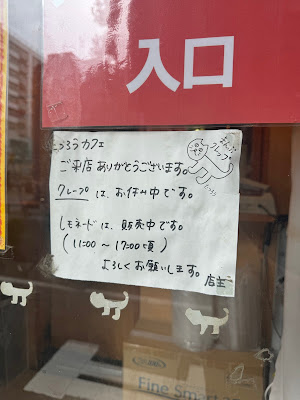 入口
ころうカフェ
ご来店ありがとうございます。
クレープは、お休み中です。
レモネードは、販売中です。
(11:00～17:00頃)
よろしくお願いします。
店主
Fine Smart